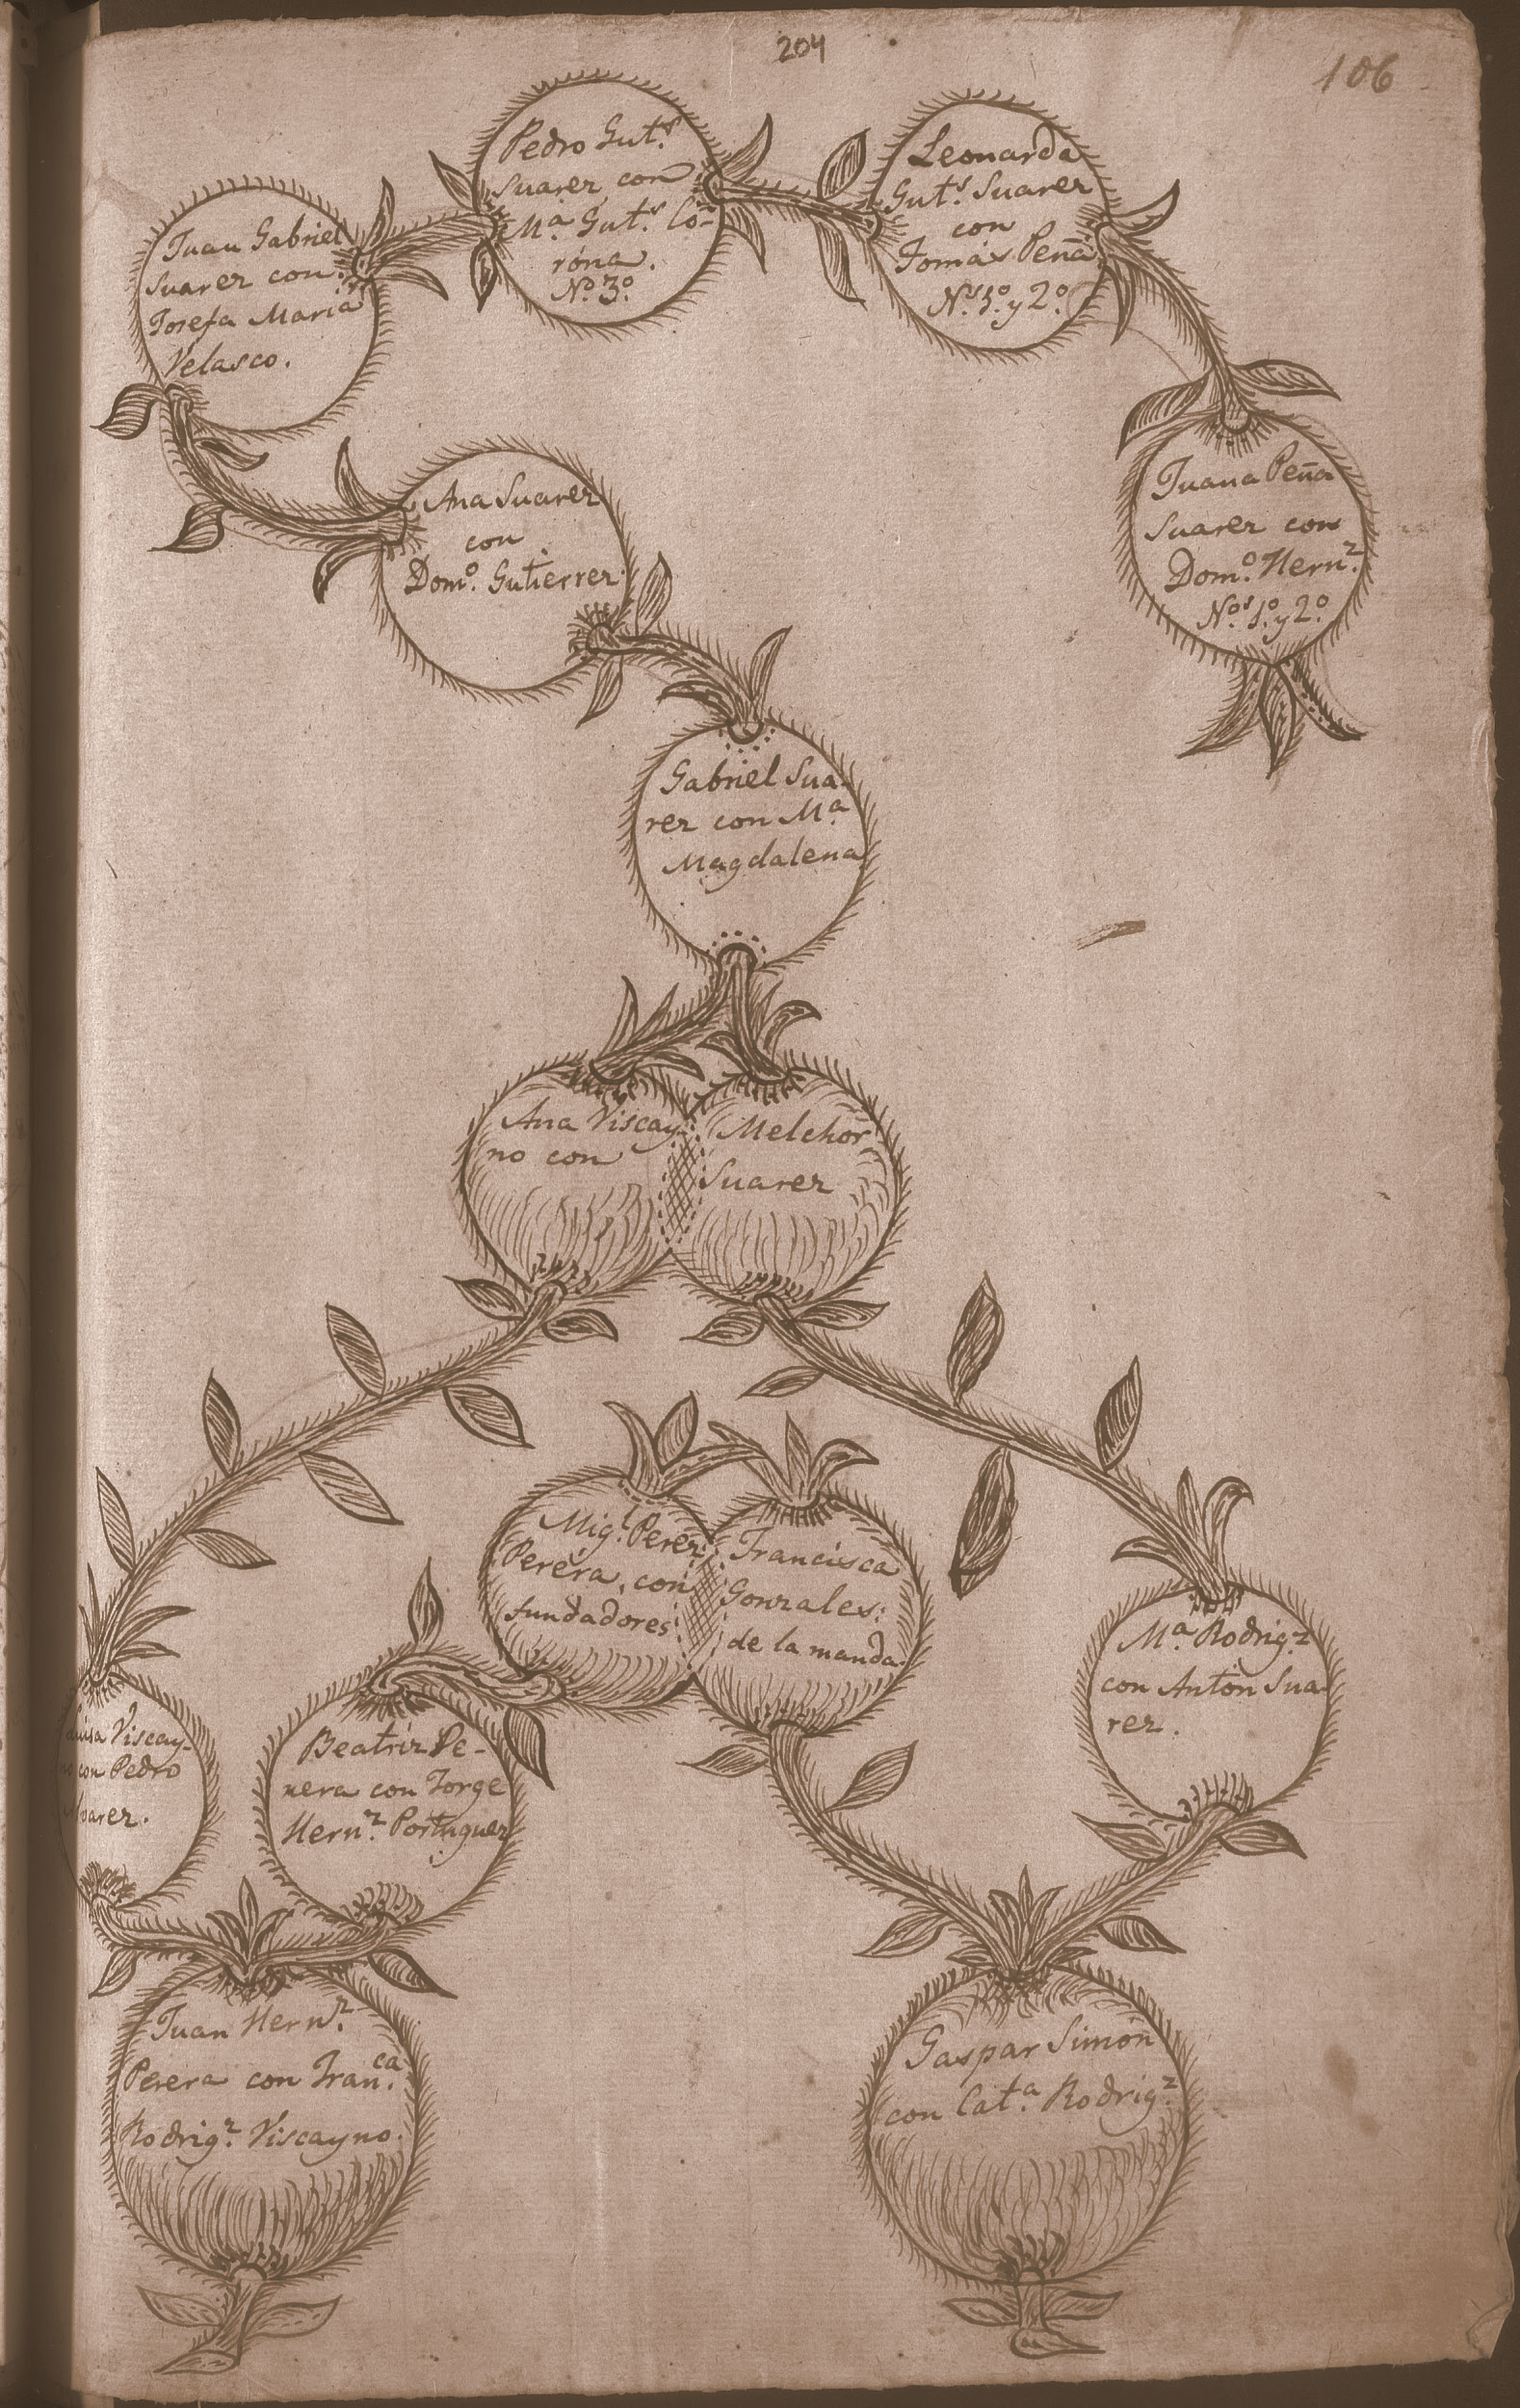 204
106
Pedro Gut.s
Suarez con
M.a Gut.s Co-
róna.
N.o 3.o
Leonarda
Gut.s Suarez
con
Tomás Peña
N.s 1.o y 2.o
Juan Gabriel
Suarez con
Josefa Maria
Velasco.
Ana Suarez
con
Dom.o Gutierrez
Juana Peña
Suarez con
Dom.o Hern.z
N.os 1.o y 2.o
Gabriel Sua-
rez con M.a
Magdalena
Ana Viscay-
no con
Melchor
Suarez
Mig.l Perez
Peréra, con
fundadores
Francisca
Gonzales:
de la manda.
M.a Rodrig.z
con Antón Sua-
rez.
Viscay-
con Pedro
Beatriz Pe-
rera con Jorge
Hern.z Portuguez
Juan Hern.z
Perera con Fran.ca
Rodrig.z Viscayno.
Gaspar Simón
con Cat.a Rodrig.z